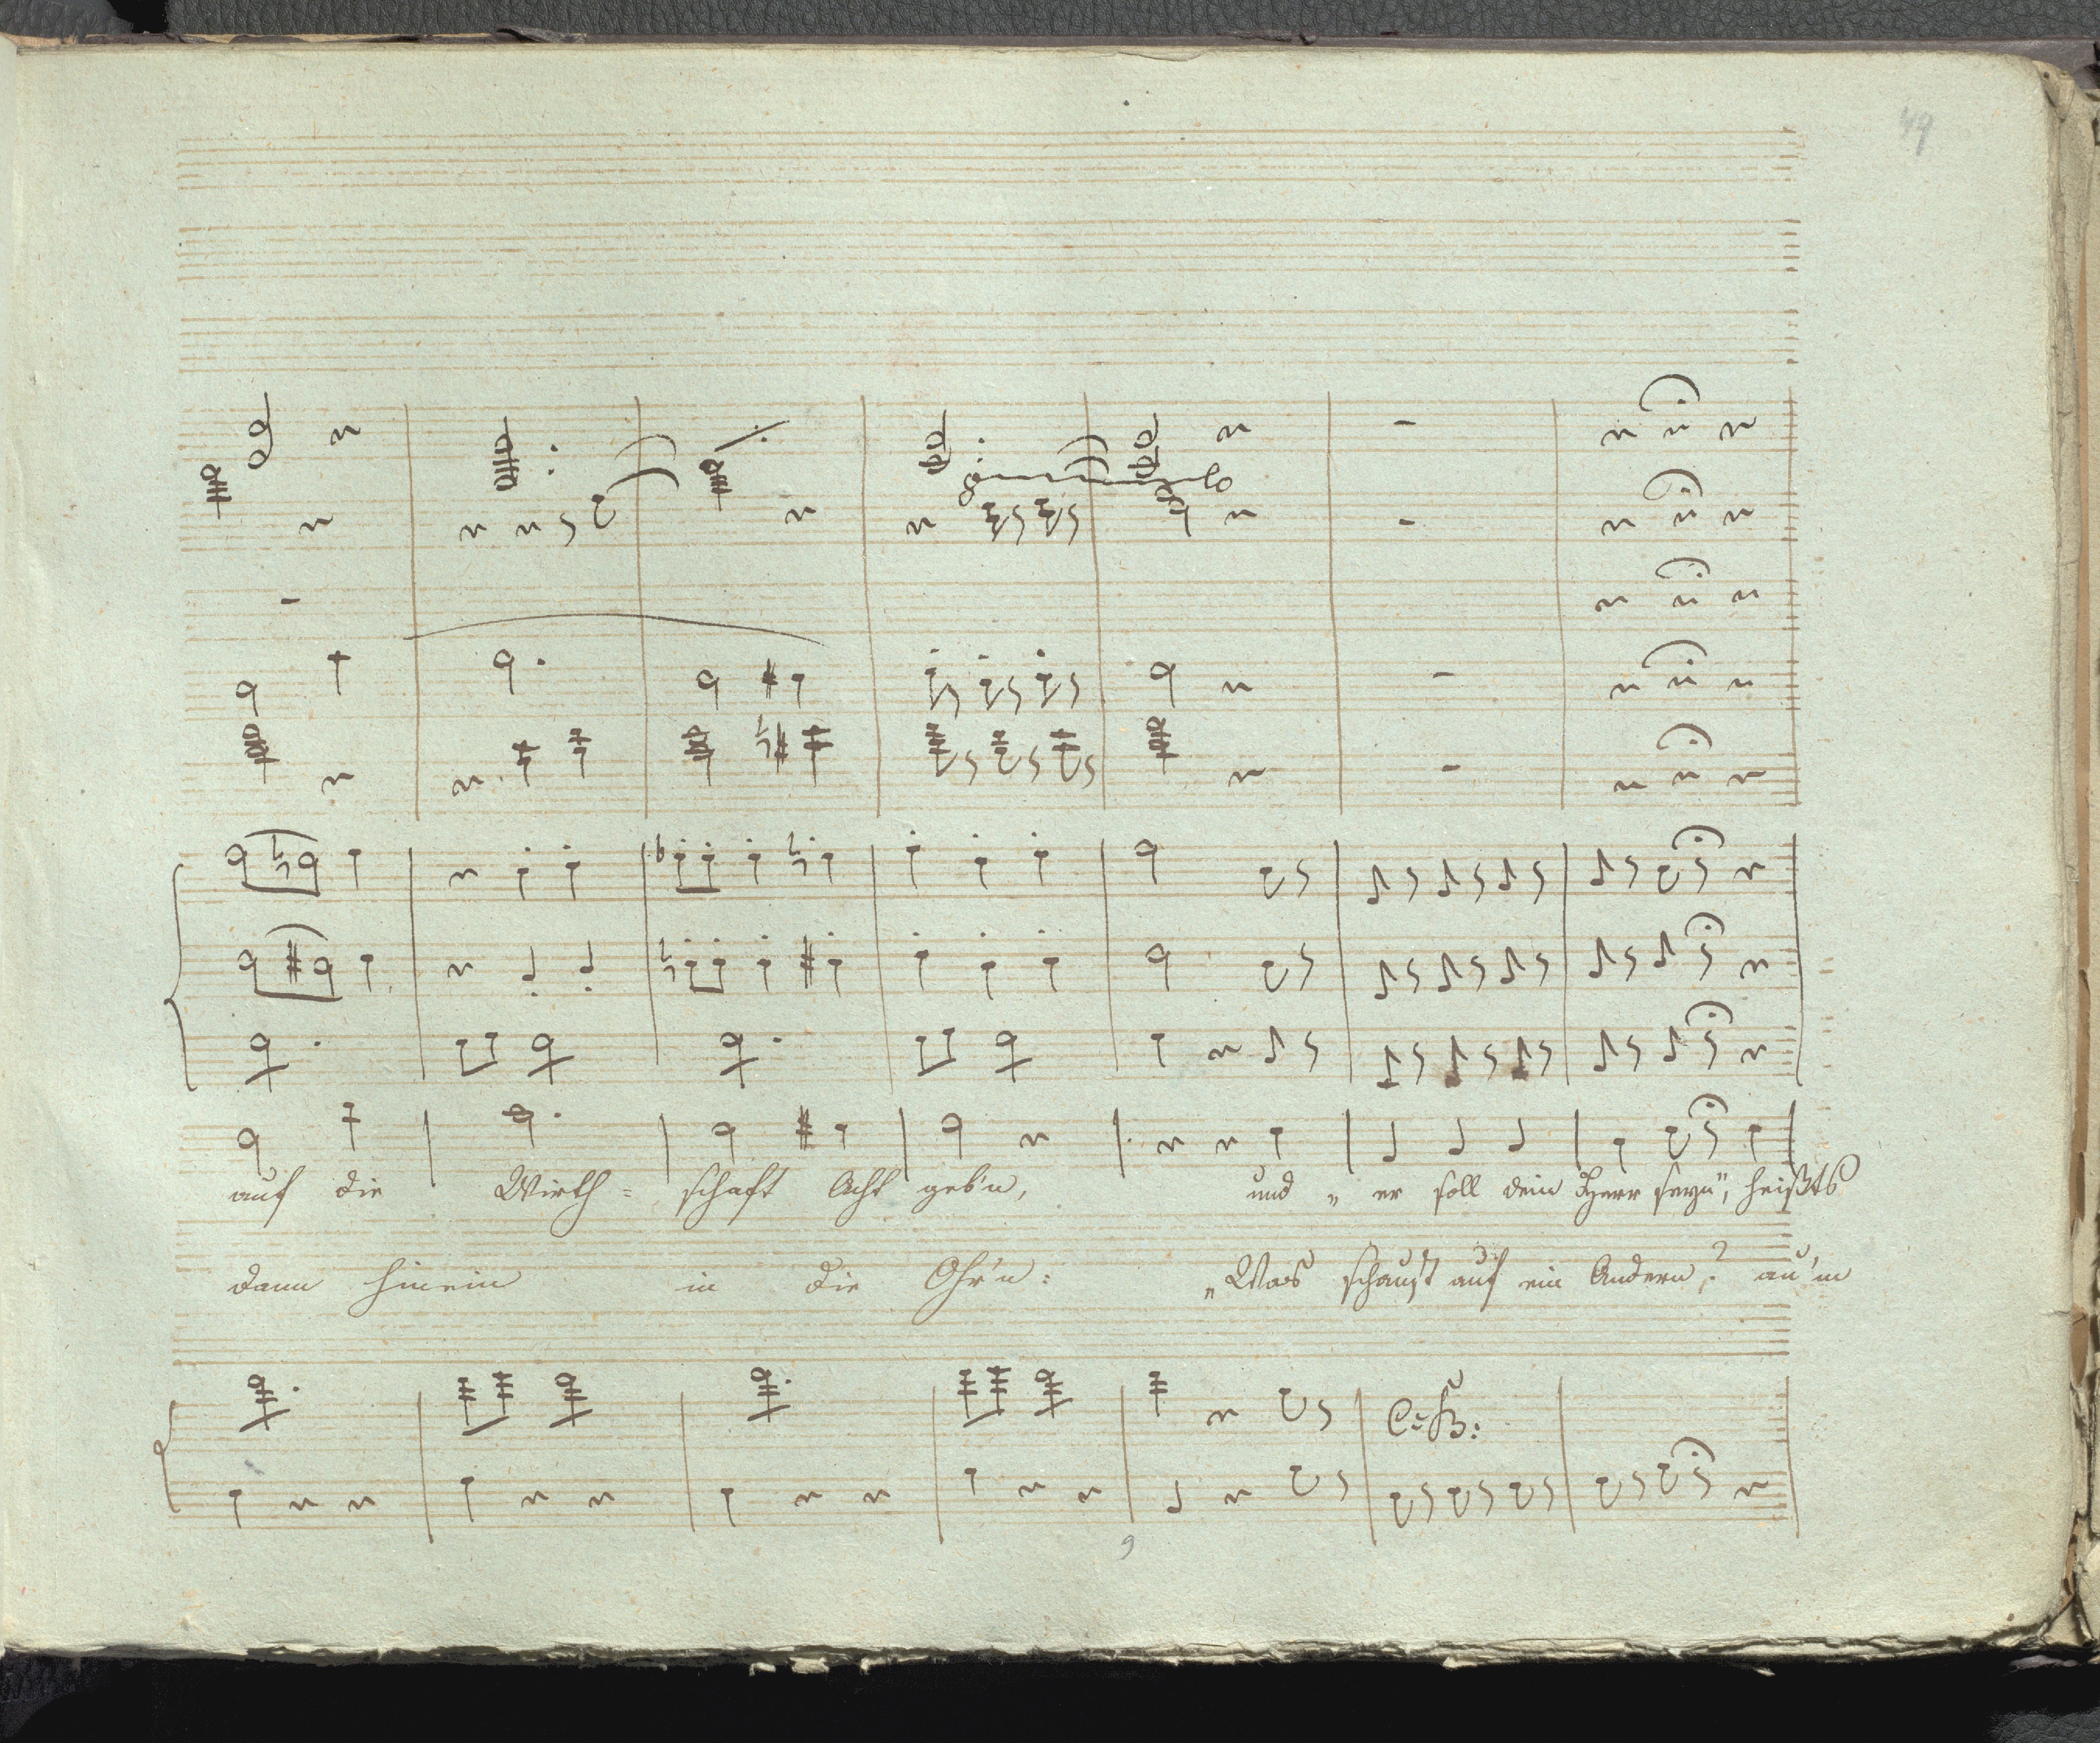 49
auf die Wirth= schaft Acht geb'n, und „ er soll dein Herr seyn", heißts
dann hinein in die Ohr'n: „Was schaust auf ein Andern? au'm
C: B:
9